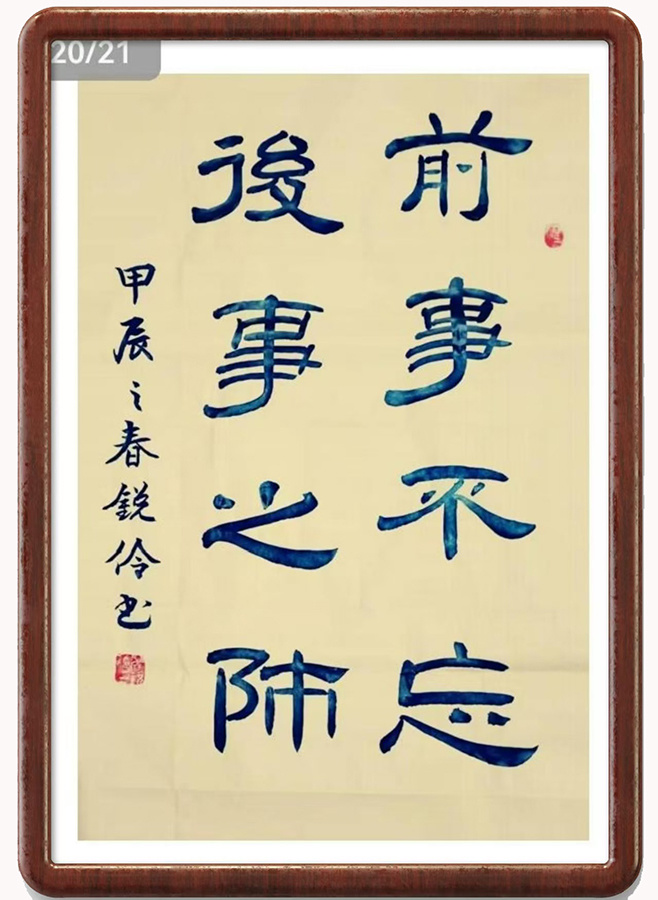 20/21
前事不忘
後事之師
甲辰之春銳伶书